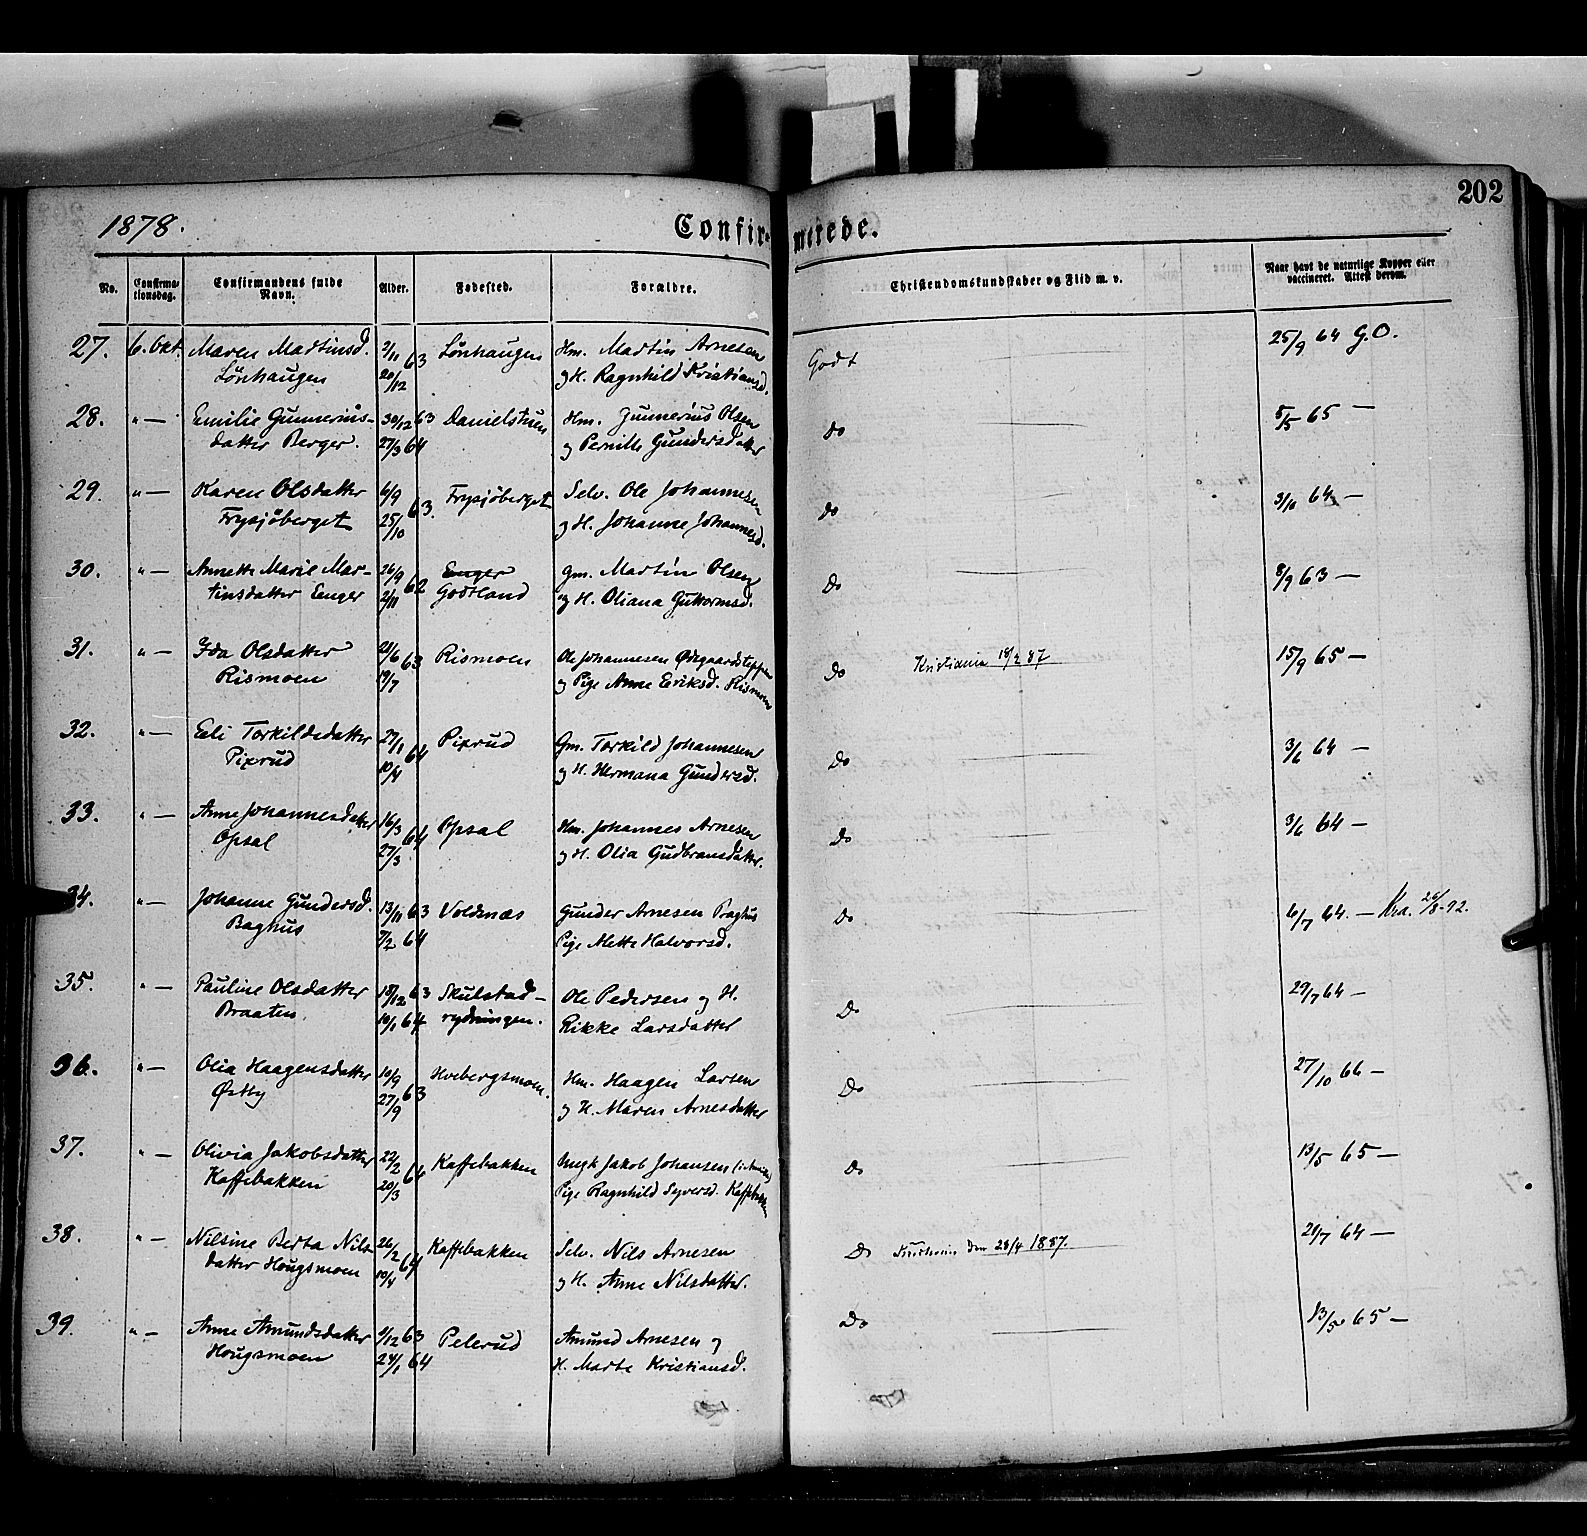 202
1878.
Confirmerede.
No.
Confirma-
tionsdag.
Confirmandens fulde
Navn.
Alder.
Fødested.
Forældre.
Christendomskundskaber og Flid m. v.
Naar havt de naturlige Kopper eller
vaccineret. Attest derom.
27. 6. Okt. Maren Martinsd. 2/11 63 Lönhaugen Hm. Martin Arnesen Godt 25/9 64 G.O.
Lönhaugen 20/12 og H. Ragnhild Kristiansd.
28. " — Emilie Gunnerius- 30/12 63 Danielstuen Hm. Gunnerius Olsen Do 5/5 65 —
datter Berger. 27/3 64 og Pernille Gundersdatter
29. " — Karen Olsdatter 6/9 63. Frysjöberget Selv. Ole Johannesen Do 3/10 64 —
Frysjöberget 25/10 og H. Johanne Johannesd.
30. " — Annette Marie Mar- 26/9 62 Enger Gm. Martin Olsen Do 8/9 63 —
tinsdatter Enger 2/11 Godtland og H. Oliana Guttormsd.
31. " — Ida Olsdatter 28/6 63 Rismoen Ole Johannesen Ødegaards Do Kristiania 18/2 87 15/9 65 —
Rismoen 19/7 og Pige Anne Eriksd. Rismoen
32. " — Eli Torkildsdatter 27/1 64 Pixrud Gm. Torkild Johannesen Do 3/6 64 —
Pixrud 10/4 og H. Hermana Gundersd.
33. " — Anne Johannesdatter 16/3 64 Opsal Hm. Johannes Arnesen Do 3/6 64 —
Opsal 27/3 og H. Olia Gudbransdatter.
34. " — Johanne Gundersd. 13/11 63 Voldnæs Gunder Arnesen Baghus Do 6/7 64. — Kra. 26/8-92.
Baghus 7/2 64 Pige Mette Halvorsd.
35. " — Pauline Olsdatter 18/12 63 Skulstad- Ole Pedersen og H. Do 29/7 64 —
Braaten. 10/1 64 rydningen. Rikke Larsdatter
36. " — Olia Haagensdatter 10/9 63 Hvebergsmoen. Hm. Haagen Larsen Do 27/10 66 —
Østby 27/9 og H. Maren Arnesdatter
37. " — Olivia Jakobsdatter 22/2 64 Kaffebakken Ungk Jakob Johansen Do 13/5 65 —
Kaffebakken 20/3 Pige Ragnhild Syversd. Kaffebakken
38. " — Nilsine Berta Nils- 26/2 64 Kaffebakken Selv. Nils Arnesen Do den 28/4 1887. 20/7 64 —
datter Hougsmoen 10/4 og H. Anne Nilsdatter.
39. " — Anne Amundsdatter 9/12 63 Pelerud Amund Arnesen og Do 13/5 65 —
Hougsmoen 24/1 64 H. Marte Kristiansd.